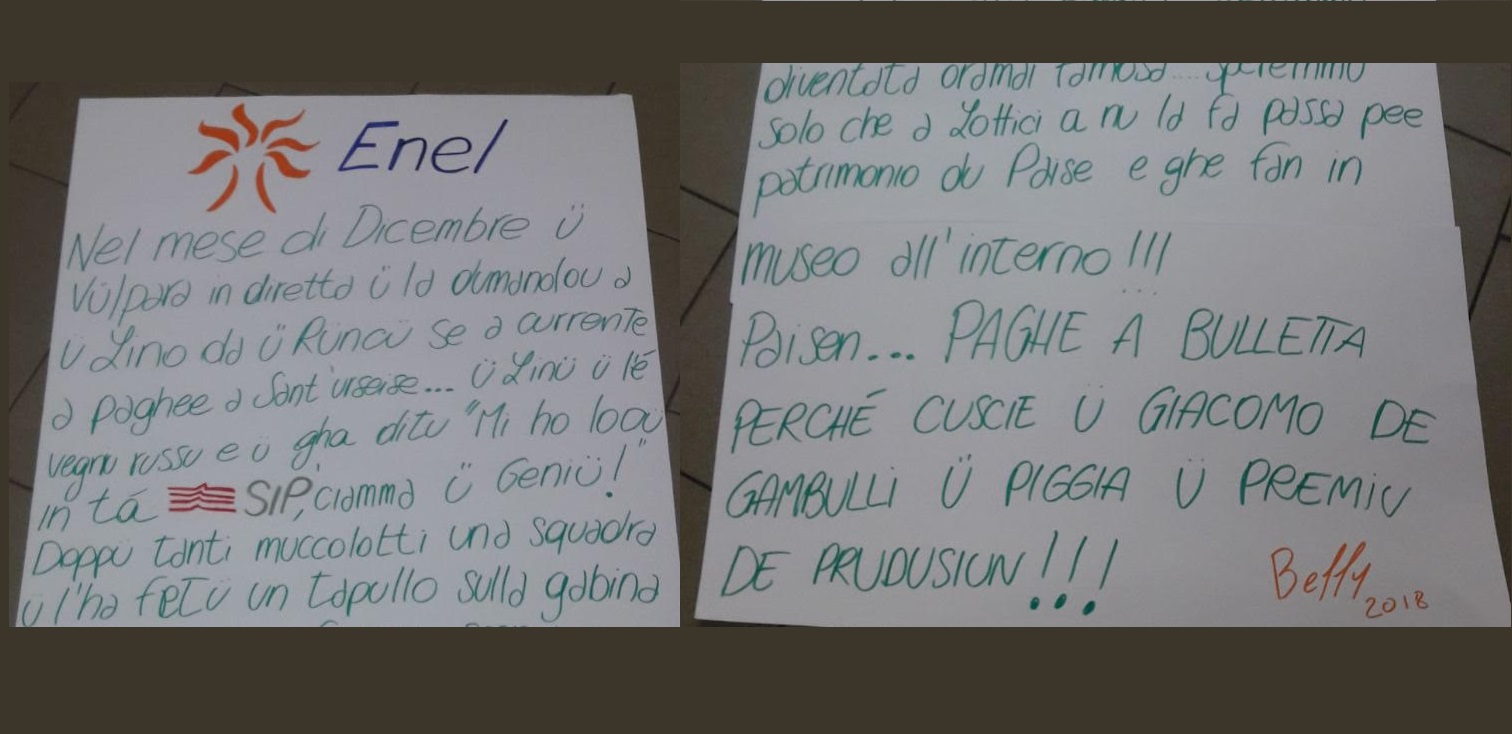 Enel
Nel mese di Dicembre Ü
Vülpara in diretta ü la dumandou a
Ü Lino da ü Runcu se a currente
a paghee a Sant'urseise... Ü Linü ü l'é
vegnu russu e ü gha ditu "Mi ho loou
in ta SIP, ciamma ü Geniü!"
Doppu tanti muccolotti una squadra
ü l'ha fetu un tapullo sulla gabina
diventata oramai famosa.... speremmu
solo che a Lottici a nu la fa passa pee
patrimonio du Paise e ghe fan in
museo all'interno!!!
Paisen... PAGHE A BULLETTA
PERCHÉ CUSCIE Ü GIACOMO DE
GAMBULLI Ü PIGGIA Ü PREMIU
DE PRUDUSIUN!!!
Beffy 2018